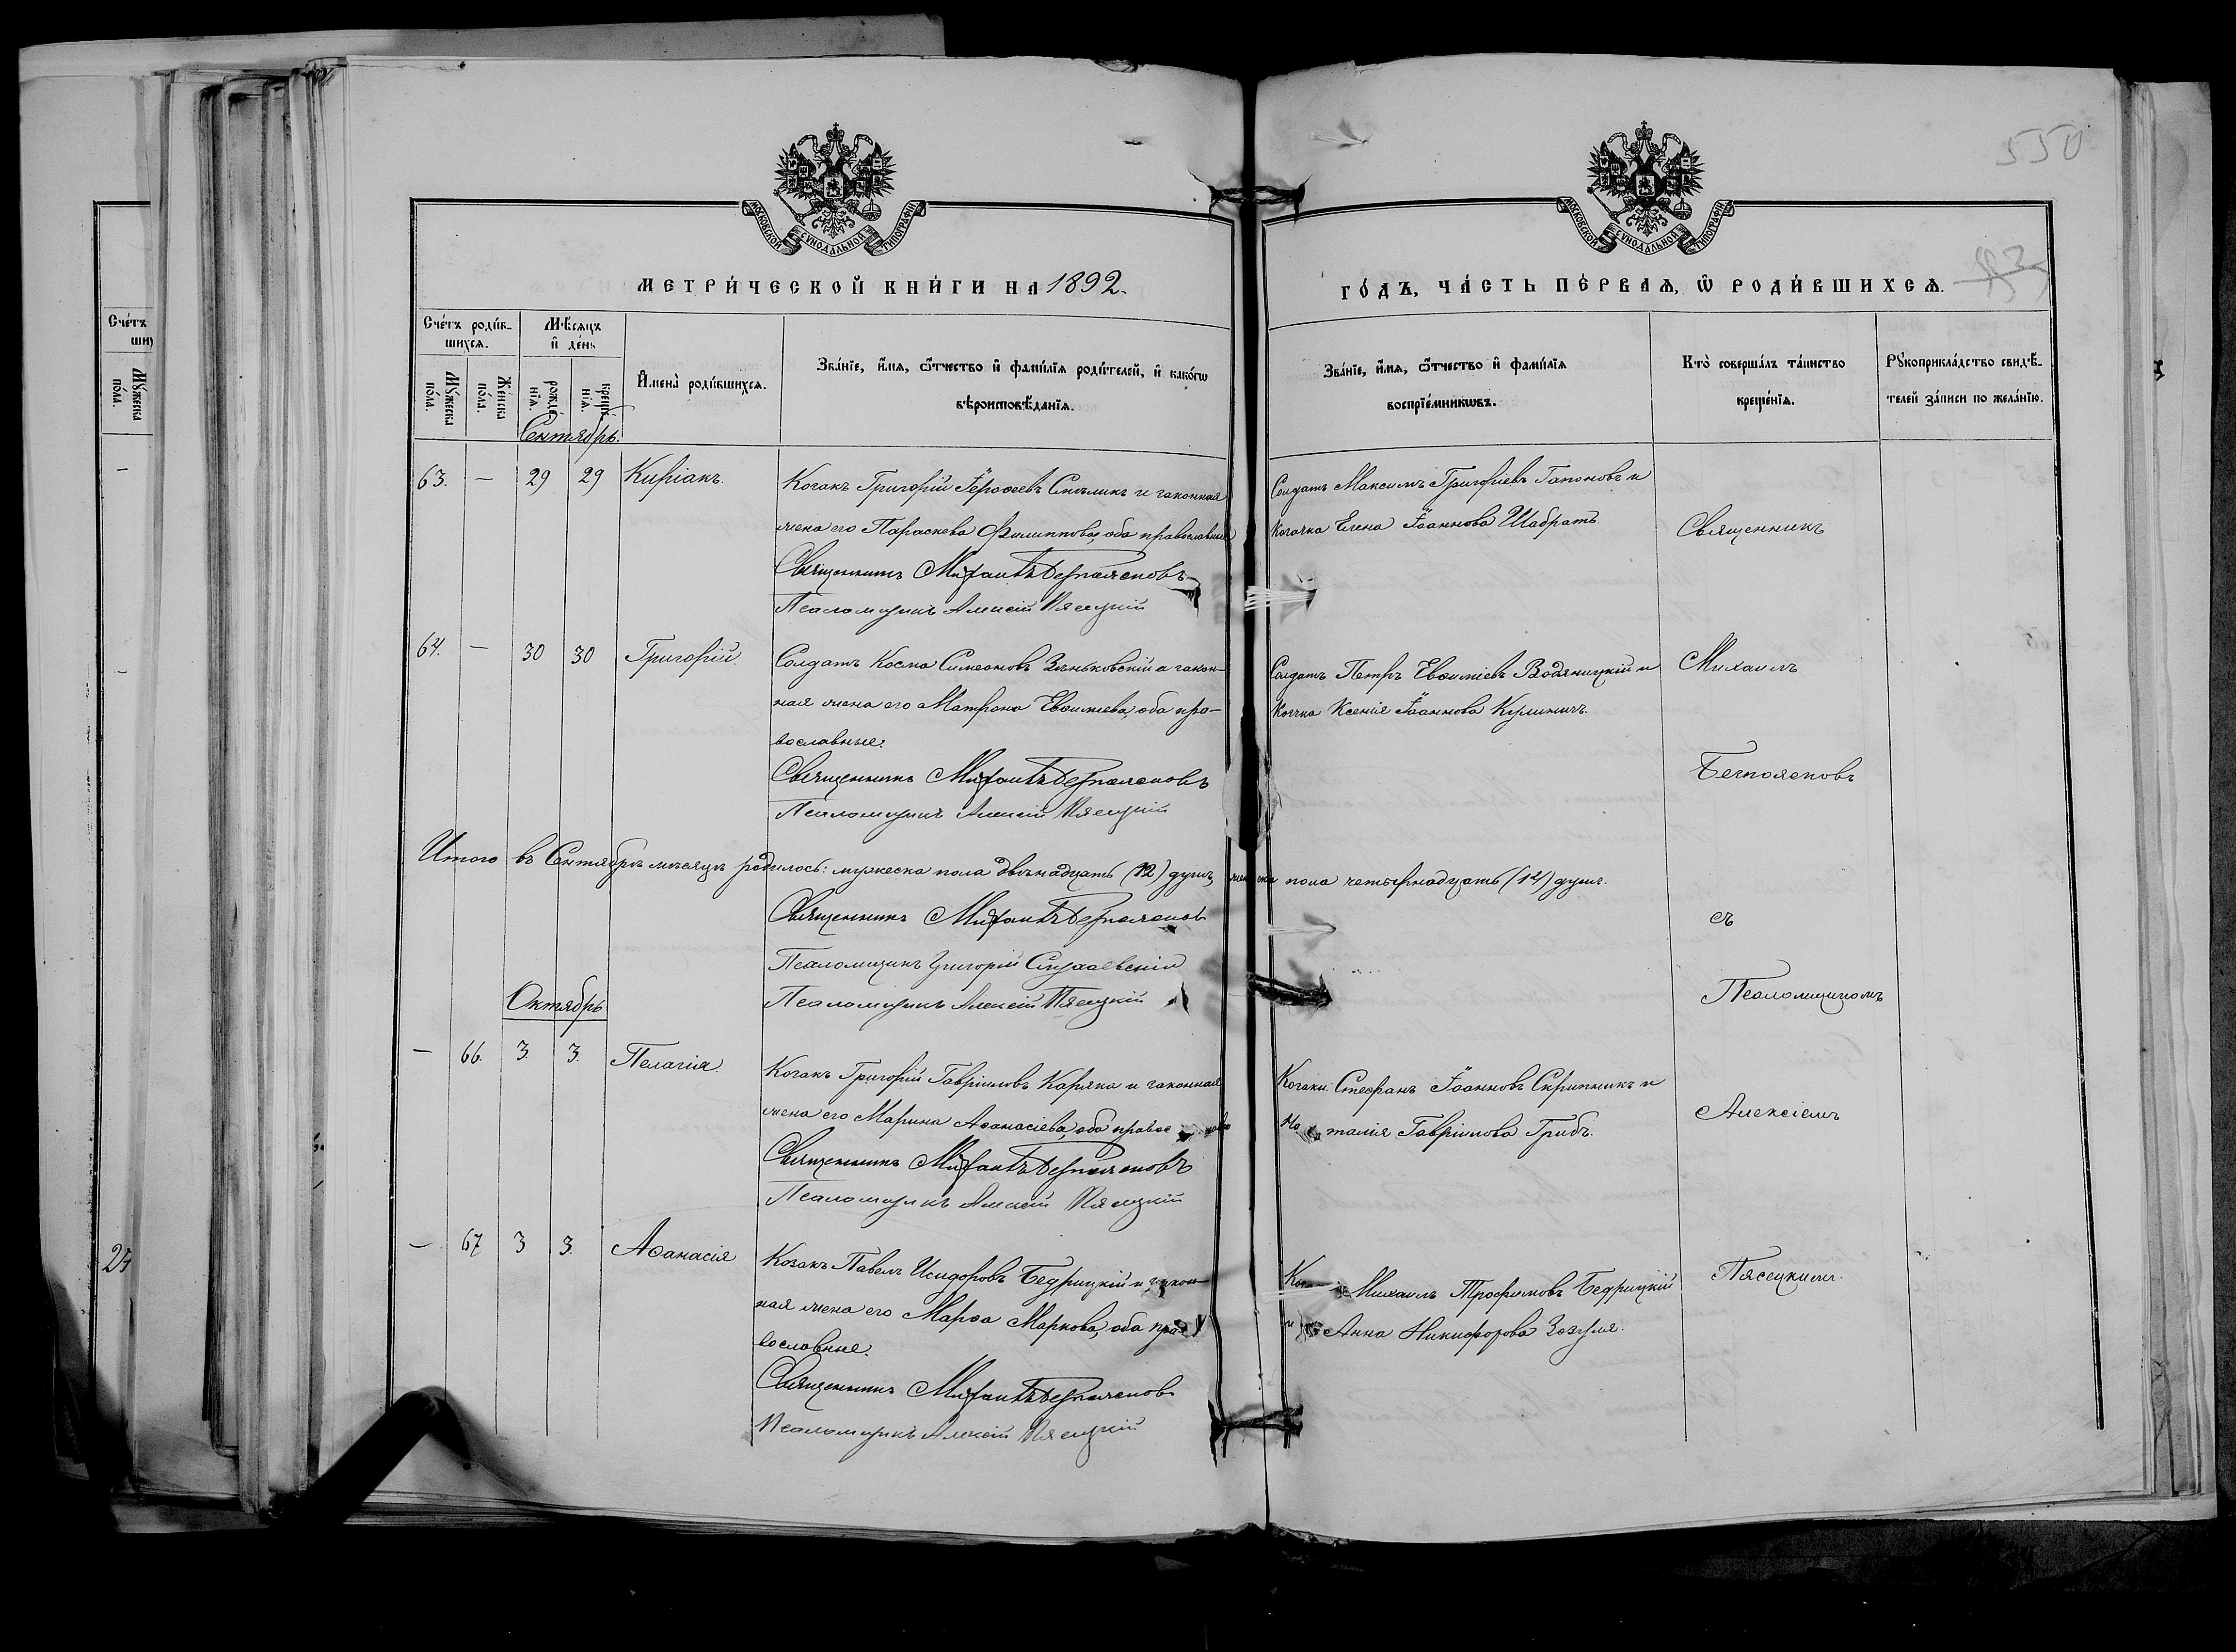 550
МОСКОВСКОЙ СУНОДАЛЬНОЙ ТИПОГРАФІИ
МОСКОВСКОЙ СУНОДАЛЬНОЙ ТИПОГРАФІИ
МЕТРИ́ЧЕСКОЙ КНИ́ГИ НА 1892.
ГО́ДЪ, ЧА́СТЬ ПЕ́РВАѦ, Ѿ РОДИ́ВШИХСѦ.
Сче́тъ роди́вшихсѧ.
Мꙋ́жеска по́ла.
Же́нска по́ла.
Мѣ́сѧцъ и҆ де́нь
рожде́нїѧ.
креще́нїѧ.
И҆мена̀ роди́вшихсѧ.
Зва́нїе, и҆́мѧ, ѻ҆́тчество и҆ фамı́лїѧ роди́телей, и҆ како́гѡ
вѣроисповѣ́данїѧ.
Зва́нїе, и҆́мѧ, ѻ҆́тчество и҆ фамı́лїѧ
воспрїе́мникѡвъ.
Кто̀ соверша́лъ та́инство
креще́нїѧ.
Рꙋкоприкла́дство свидѣ́-
телей за́писи по жела́нїю.
Сентябрь.
63. — 29 29 Киріакъ.
Козакъ Григорій Іероѳеевъ и законная
жена его Параскева Филиппова, оба православные
Священникъ Михаилъ Безпоясковъ
Псаломщикъ Алексій Пясецкій
Солдатъ Максимъ Григоріевъ Гапоновъ и
Козачка Елена Іоаннова Шабратъ.
Священникъ
64. — 30 30 Григорій.
Солдатъ Косма Симеоновъ Зѣньковскій и закон-
ная жена его Матрона Евѳиміева, оба пра-
вославные.
Священникъ Михаилъ Безпоясковъ
Псаломщикъ Алексій Пясецкій
Солдатъ Петръ Евѳиміевъ Водяницкій и
Ксенія Іоаннова Кулиничъ.
Михаилъ
Безпоясковъ
Итого въ Сентябрѣ мѣсяцѣ родилось: мужеска пола двѣнадцать (12) душъ, женска пола четырнадцать (14) душъ.
Священникъ Михаилъ Безпоясковъ
Псаломщикъ Григорій
Псаломщикъ Алексій Пясецкій
съ
Псаломщикомъ
Октябрь
— 66. 3. 3. Пелагія.
Козакъ Григорій Гавріиловъ Каряка и законная
жена его Марина Аѳанасіева, оба правос
Священникъ Михаилъ Безпоясковъ
Псаломщикъ Алексій Пясецкій
Козаки: Стефанъ Іоанновъ Скрипникъ и
Наталія Гавріилова Грибъ.
Алексіемъ
— 67 3 3. Аѳанасія
Козакъ Павелъ Исидоровъ Бедрицкій и закон-
ная жена его Марѳа Маркова, оба пра-
вославные.
Священникъ Михаилъ Безпоясковъ
Псаломщикъ Алексій Пясецкій
Михаилъ Трофимовъ Бедрицкій
и Анна Никифорова
Пясецкимъ.
Сче́тъ
Мꙋ́жеска по́ла.